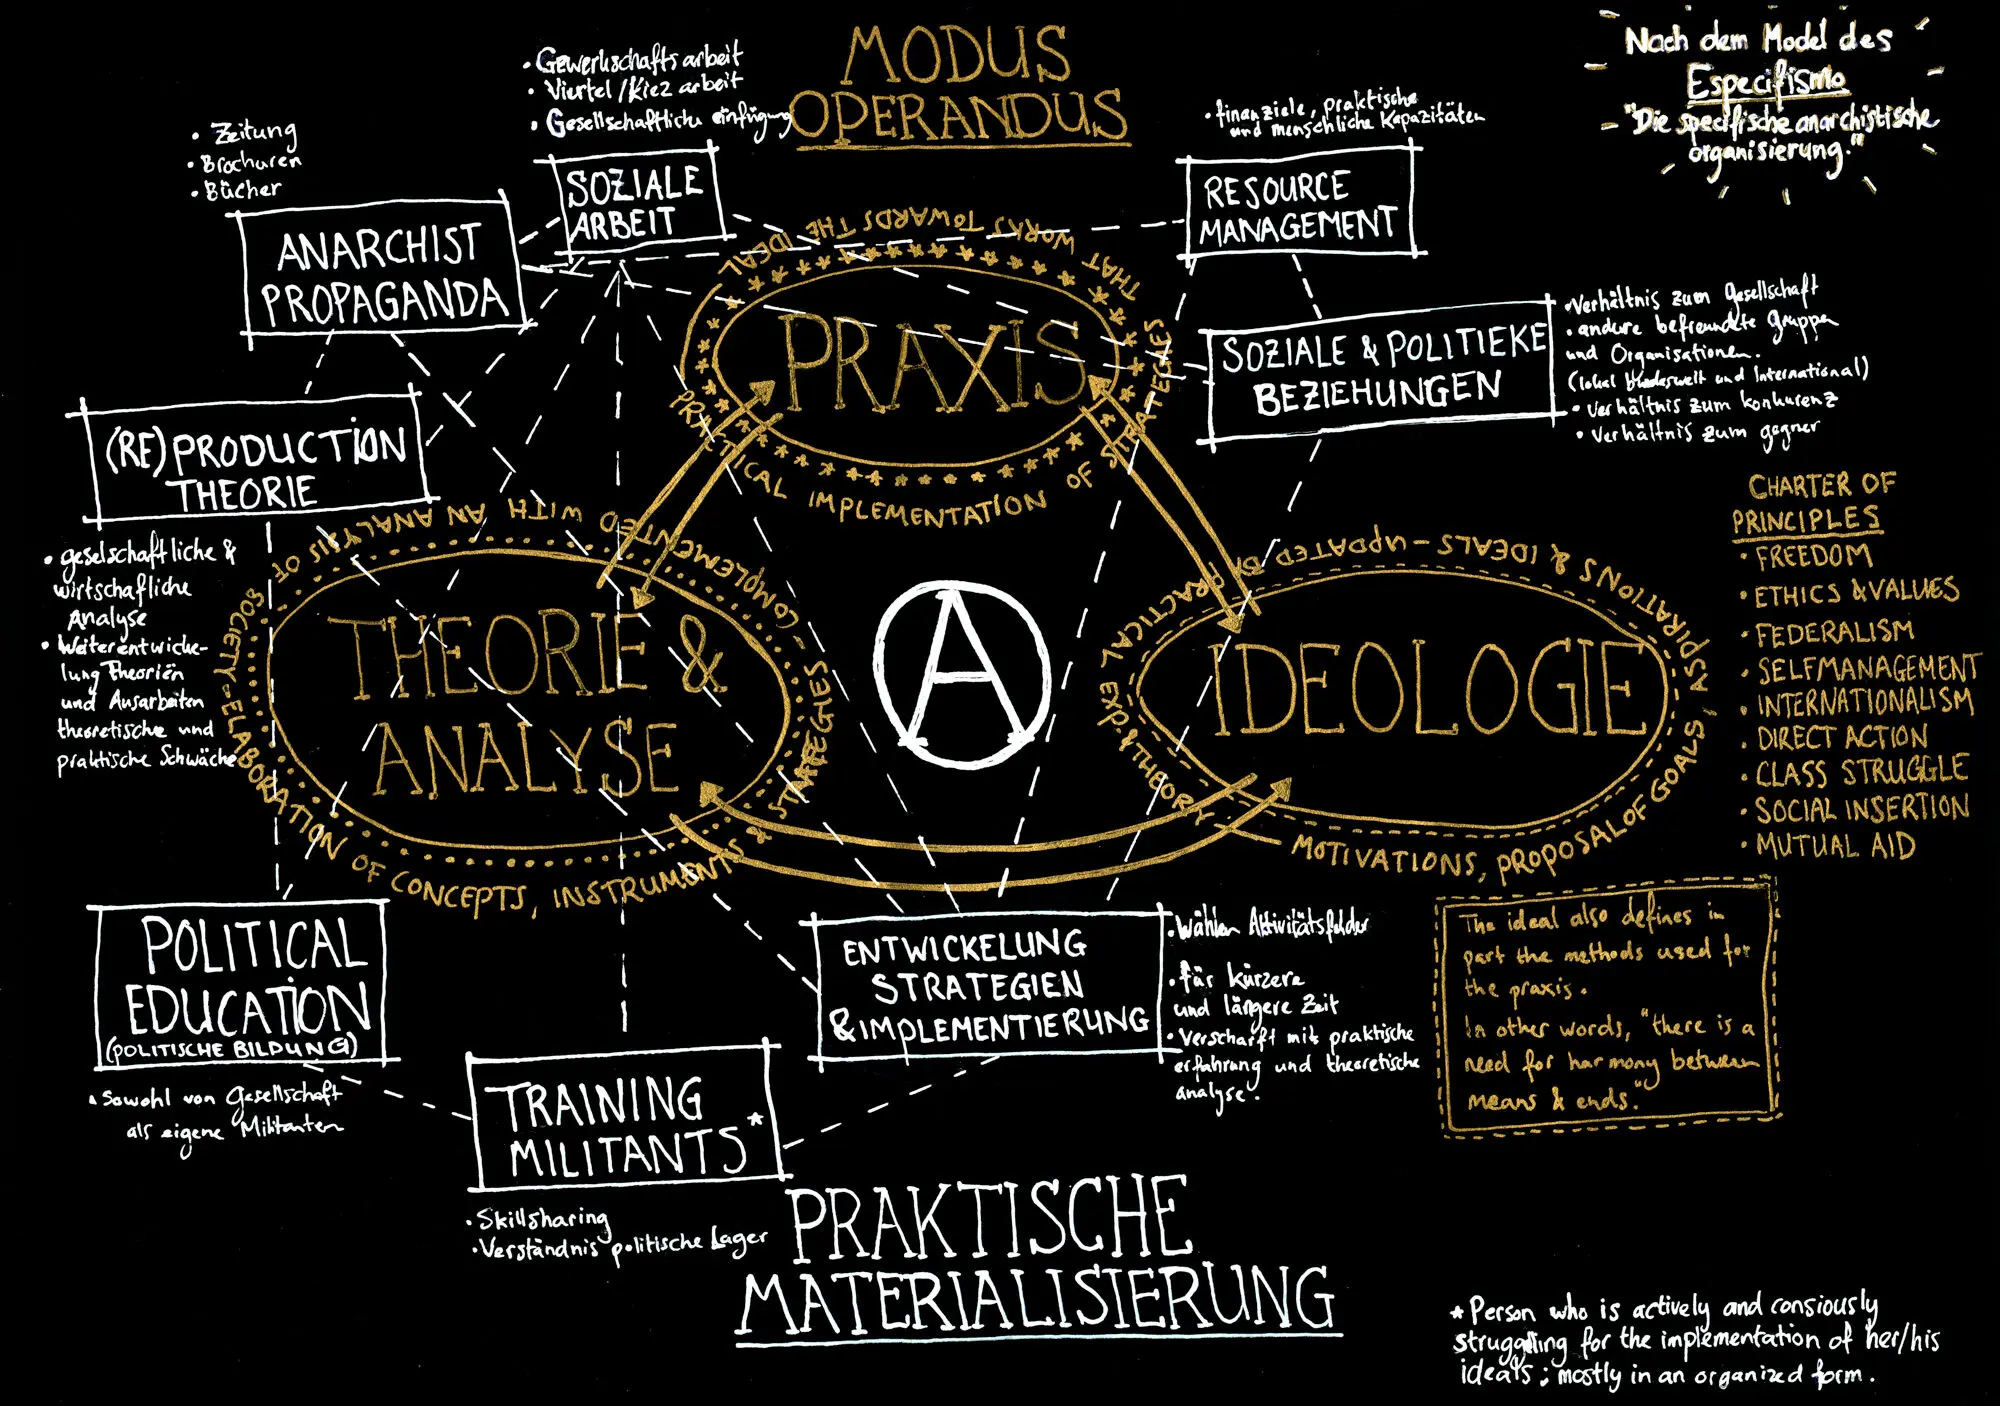 MODUS
OPERANDUS
Nach dem Model des
Especifismo
"Die specifische anarchistische
organisierung."
• Gewerkschaftsarbeit
• Viertel/Kiez arbeit
• Gesellschaftliche einfügung
SOZIALE
ARBEIT
• Zeitung
• Brochuren
• Bücher
ANARCHIST
PROPAGANDA
• finanziele, praktische
und menschliche Kapazitäten
RESOURCE
MANAGEMENT
SOZIALE & POLITIEKE
BEZIEHUNGEN
• Verhältnis zum gesellschaft
• andere befreundete gruppen
und Organisationen.
(lokal bundesweit und International)
• Verhältnis zum konkurenz
• Verhältnis zum gegner
PRAXIS
PRACTICAL IMPLEMENTATION OF STRATEGIES
THAT WORKS TOWARDS THE IDEAL
(RE)PRODUCTION
THEORIE
• geselschaftliche &
wirtschafliche
Analyse
• Weiterentwicke-
lung Theoriën
und Ausarbeiten
theoretische und
praktische Schwäche
THEORIE &
ANALYSE
SOCIETY - ELABORATION OF CONCEPTS, INSTRUMENTS & STRATEGIES -
COMPLEMENTED WITH AN ANALYSIS OF
A
IDEOLOGIE
MOTIVATIONS, PROPOSAL OF GOALS,
ASPIRATIONS & IDEALS - UPDATED BY PRACTICAL EXP. & THEORY
CHARTER OF
PRINCIPLES
• FREEDOM
• ETHICS & VALUES
• FEDERALISM
• SELFMANAGEMENT
• INTERNATIONALISM
• DIRECT ACTION
• CLASS STRUGGLE
• SOCIAL INSERTION
• MUTUAL AID
The ideal also defines in
part the methods used for
the praxis.
In other words, "there is a
need for harmony between
means & ends."
POLITICAL
EDUCATION
(POLITISCHE BILDUNG)
• Sowohl von Gesellschaft
als eigene Militanten
TRAINING
MILITANTS*
• Skillsharing
• Verständnis politische Lager
ENTWICKELUNG
STRATEGIEN
& IMPLEMENTIERUNG
• Wählen Aktivitätsfelder
• für kürzere
und längere Zeit
• Verscharft mit praktische
erfahrung und theoretische
analyse.
PRAKTISCHE
MATERIALISIERUNG
* Person who is actively and consiously
struggling for the implementation of her/his
ideals; mostly in an organized form.